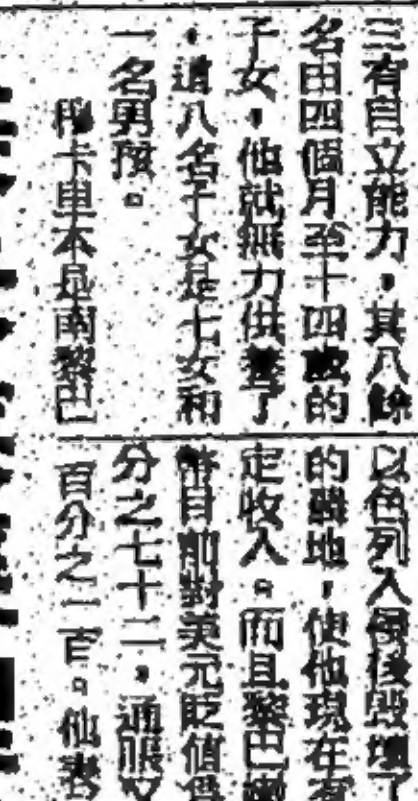 三有自立能力，其八餘
名由四個月至十四歲的
子女，他就無力供養了
，這八名子女是七女和
一名男孩。
卡里本是南黎巴
以色列入侵後毀壞了
的 地，使他現在
定收入。而且黎巴嫩
幣目前對美元貶值
分之七十二，通賬又
百分之一百。他